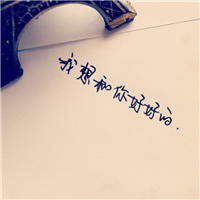 我想和你好好的.